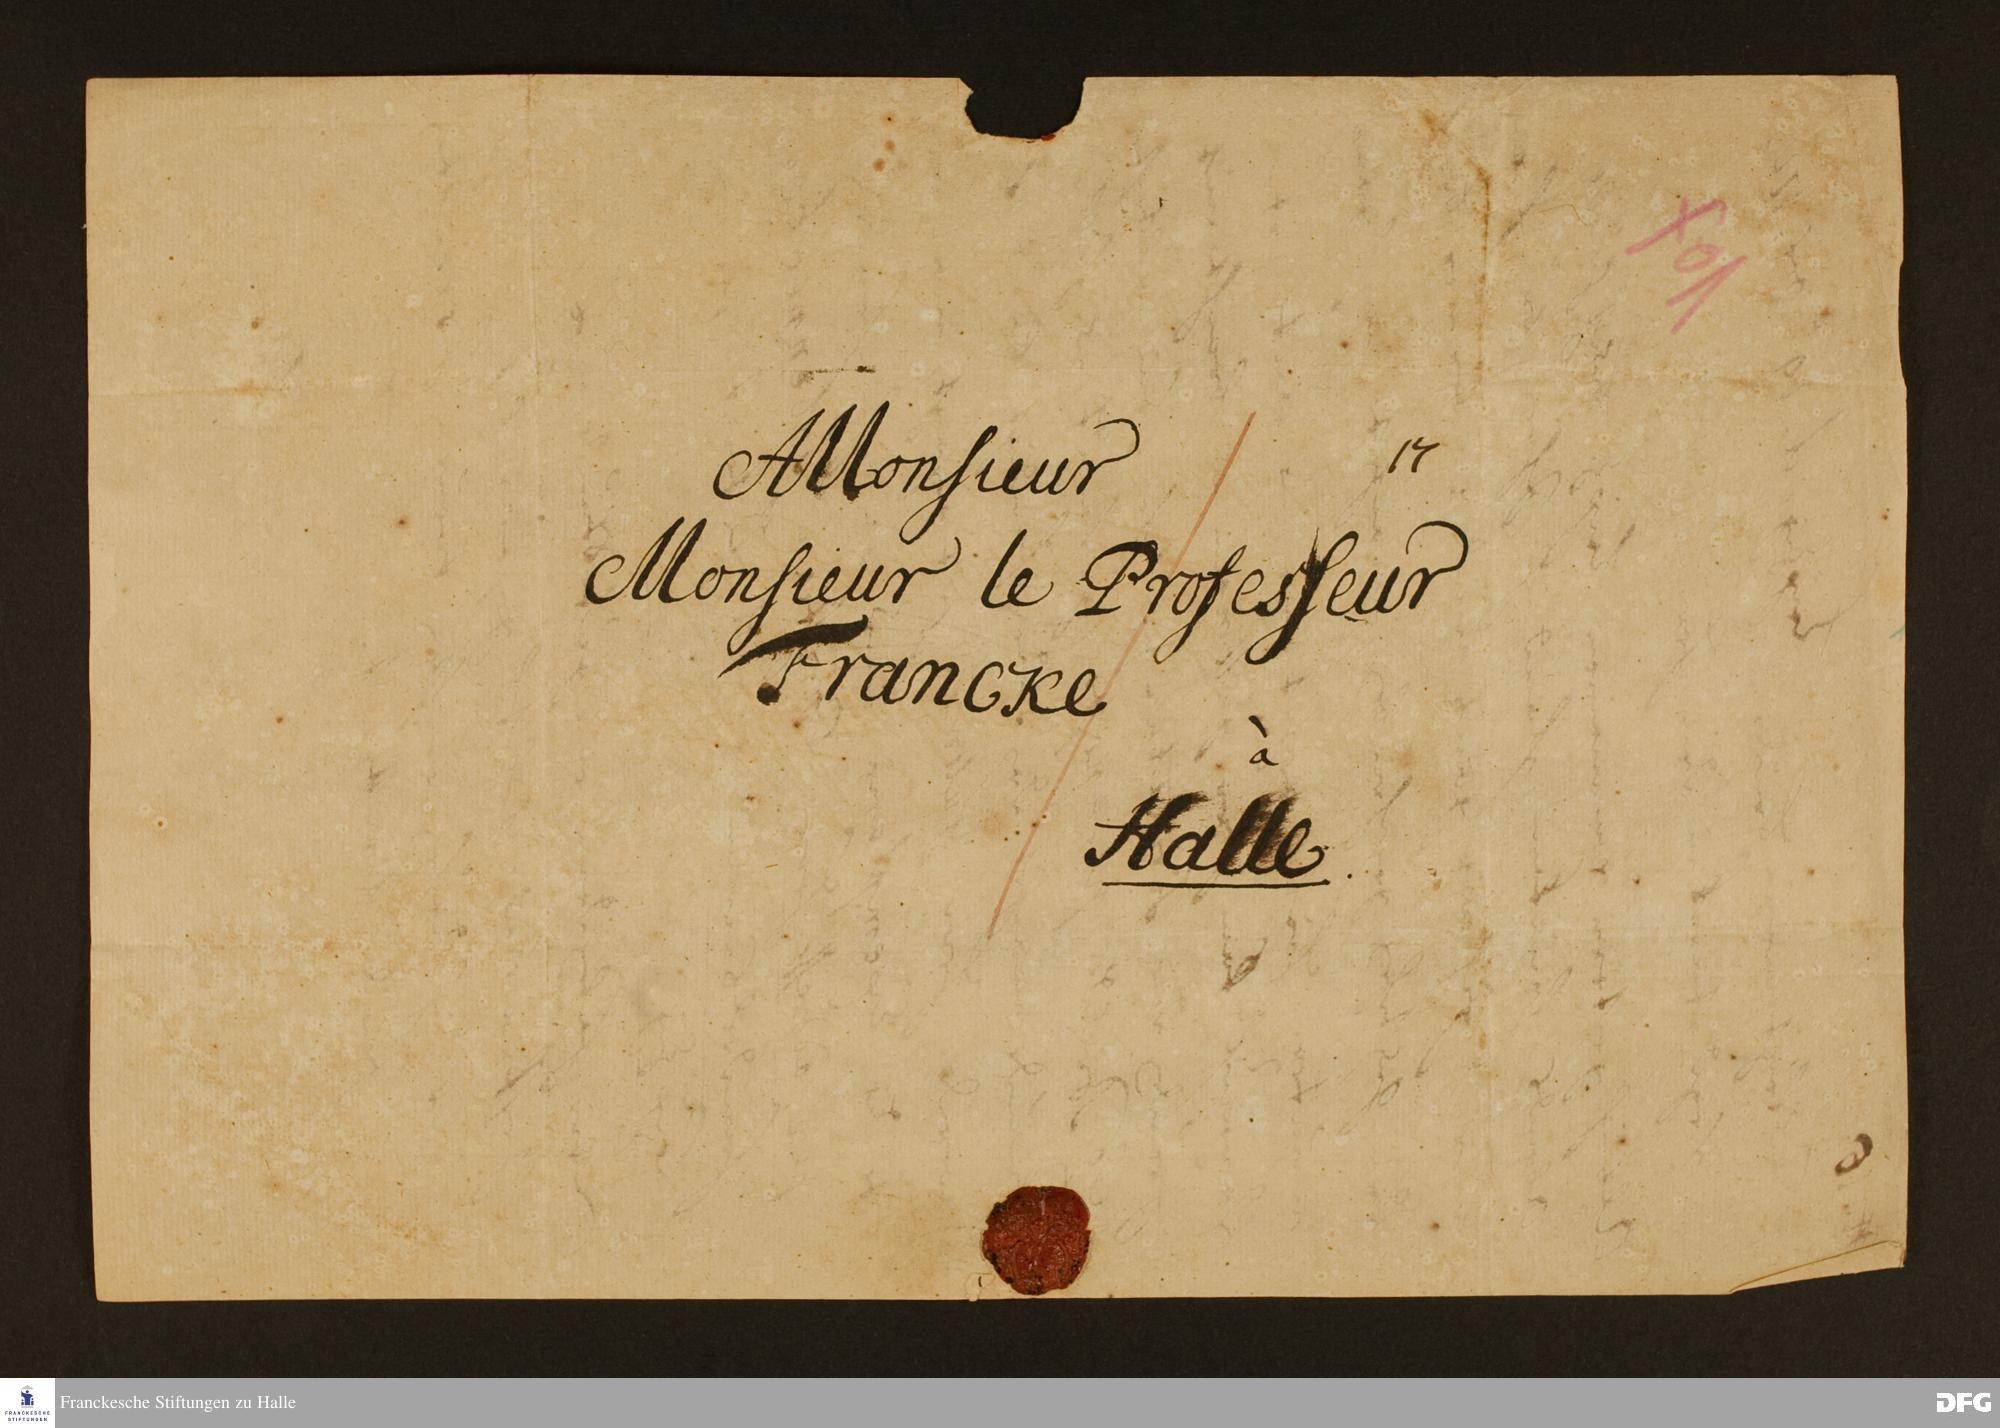 A Monsieur
17
Monsieur le Professeur
Francke
à
Halle.
FRANCKESCHE
STIFTUNGEN
Franckesche Stiftungen zu Halle
DFG